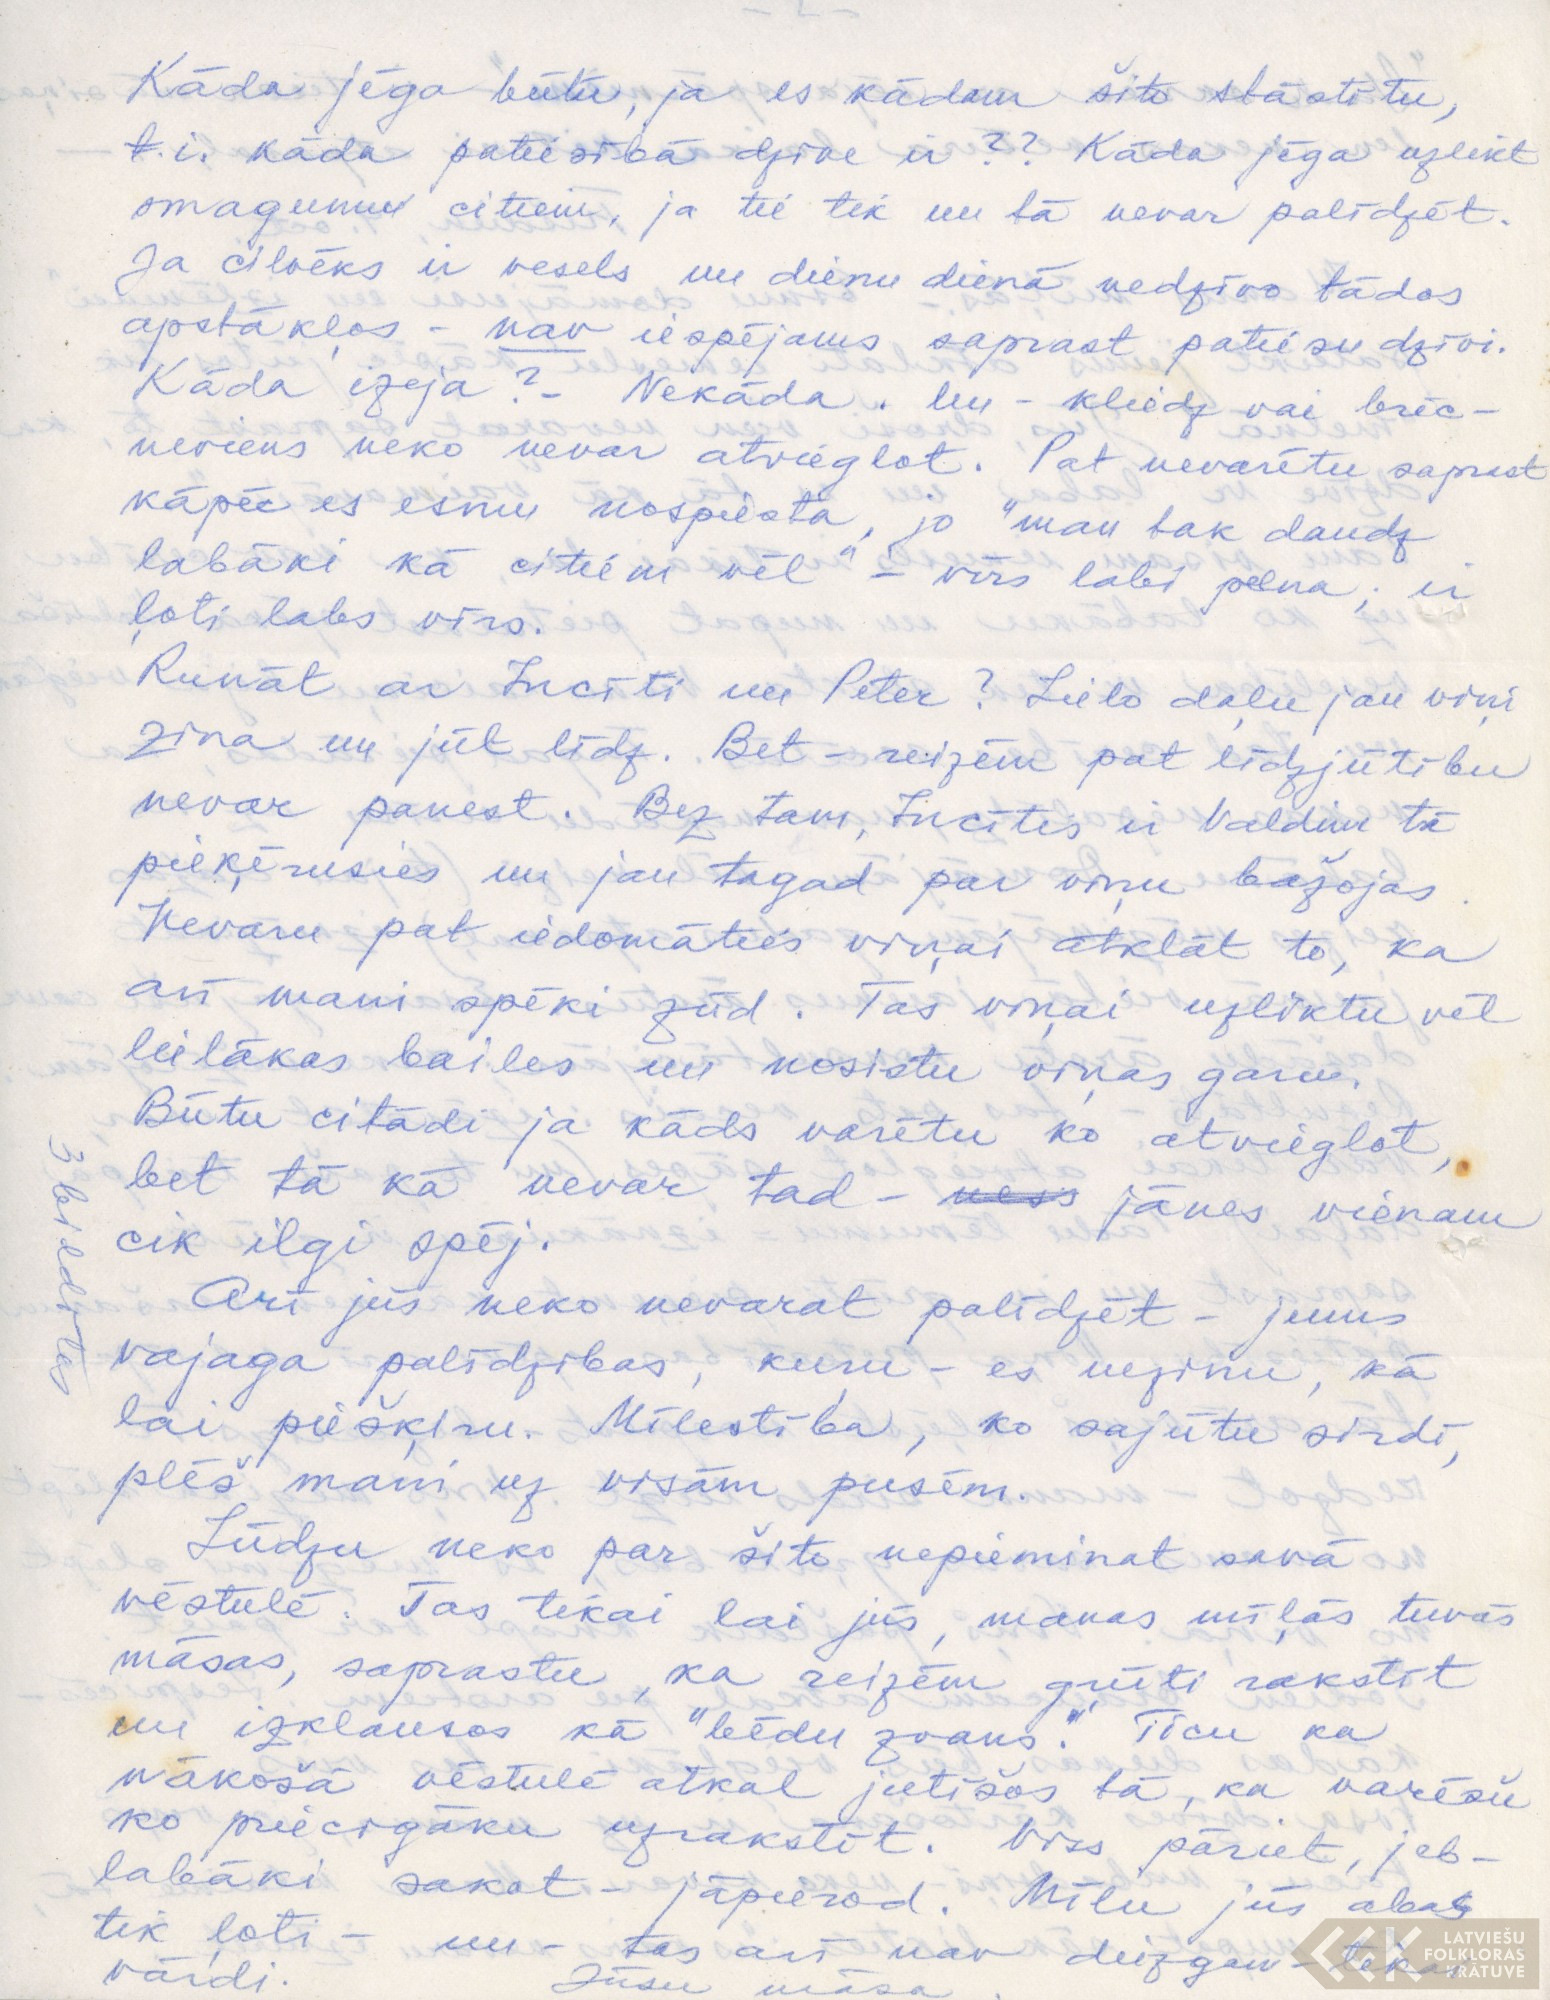 Kāda jēga būtu, ja es kādam šito stāstītu,
t.i. kāda patiesībā dzīve ir?? Kāda jēga uzlikt
smagumu citiem, ja tie tik un tā nevar palīdzēt.
Ja cilvēks ir vesels un dienu dienā nedzīvo tādos
apstākļos – nav iespējams saprast patiesu dzīvi.
Kāda izeja? – Nekāda. Un – kliedz vai brēc –
neviens neko nevar atvieglot. Pat nevarētu saprast
kāpēc es esmu nospiesta, jo "man tak daudz
labāki kā citiem vēl" – vīrs labi pelna, ir
ļoti labs vīrs.
Runāt ar Incīti un Peter? Lielo daļu jau viņi
zina un jūt līdz. Bet – reizēm pat līdzjūtību
nevar panest. Bez tam, Incītis ir Valdim tā
pieķērusies un jau tagad par viņu bažojas.
Nevaru pat iedomāties viņai atklāt to, ka
arī mani spēki zūd. Tas viņai uzliktu vēl
lielākas bailes un nosistu viņas garu.
Būtu citādi ja kāds varētu ko atvieglot,
bet tā kā nevar tad – ness jānes vienam
cik ilgi spēj.
Arī jūs neko nevarat palīdzēt – jums
vajaga palīdzības, kuru – es nezinu, kā
lai piešķiru. Mīlestība, ko sajūtu sirdī,
plēš mani uz visām pusēm.
Lūdzu neko par šito nepieminat savā
vēstulē. Tas tikai lai jūs, manas mīļās tuvās
māsas, saprastu, ka reizēm grūti rakstīt
un izklausos kā "bēdu zvans." Ticu ka
nākošā vēstulē atkal jutīšos tā, ka varēšu
ko priecīgāku uzrakstīt. Viss pāriet, jeb –
labāki sakot – jāpierod. Mīlu jūs abas
tik ļoti – un – tas arī nav diezgan – tikai
vārdi. Jūsu māsa.
3 bildītes
LATVIEŠU
FOLKLORAS
KRĀTUVE